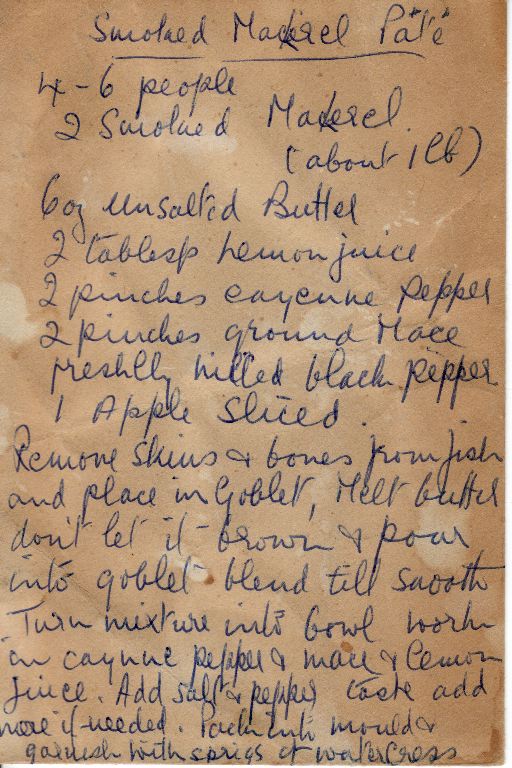 Smoked Mackerel Pâté
4-6 people
2 Smoked Mackerel.
(about 1 lb)
6oz unsalted Butter
2 tablesp Lemon juice
2 pinches cayenne pepper
2 pinches ground Mace
freshly milled black pepper
1 Apple Sliced.
Remove Skins & bones from fish
and place in Goblet, Melt butter
don't let it brown & pour
into goblet blend till smooth
Turn mixture into bowl work
in caynne pepper & mace & lemon
juice. Add salt & pepper taste add
more if needed. Pack into mould &
garnish with sprigs of watercress